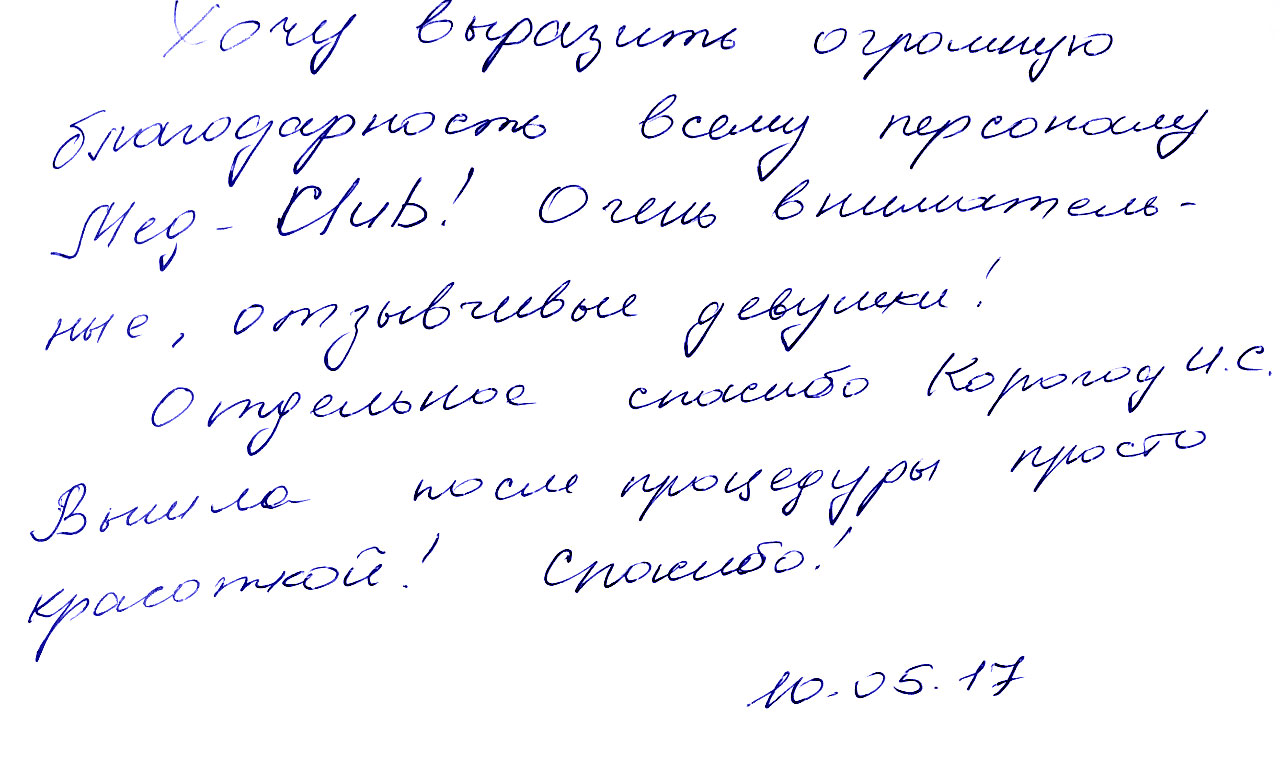 Хочу выразить огромную
благодарность всему персоналу
Мед - Club! Очень вниматель-
ные, отзывчивые девушки!
Отдельное спасибо Корогод И.С.
Вышла после процедуры просто
красоткой! Спасибо!
10.05.17